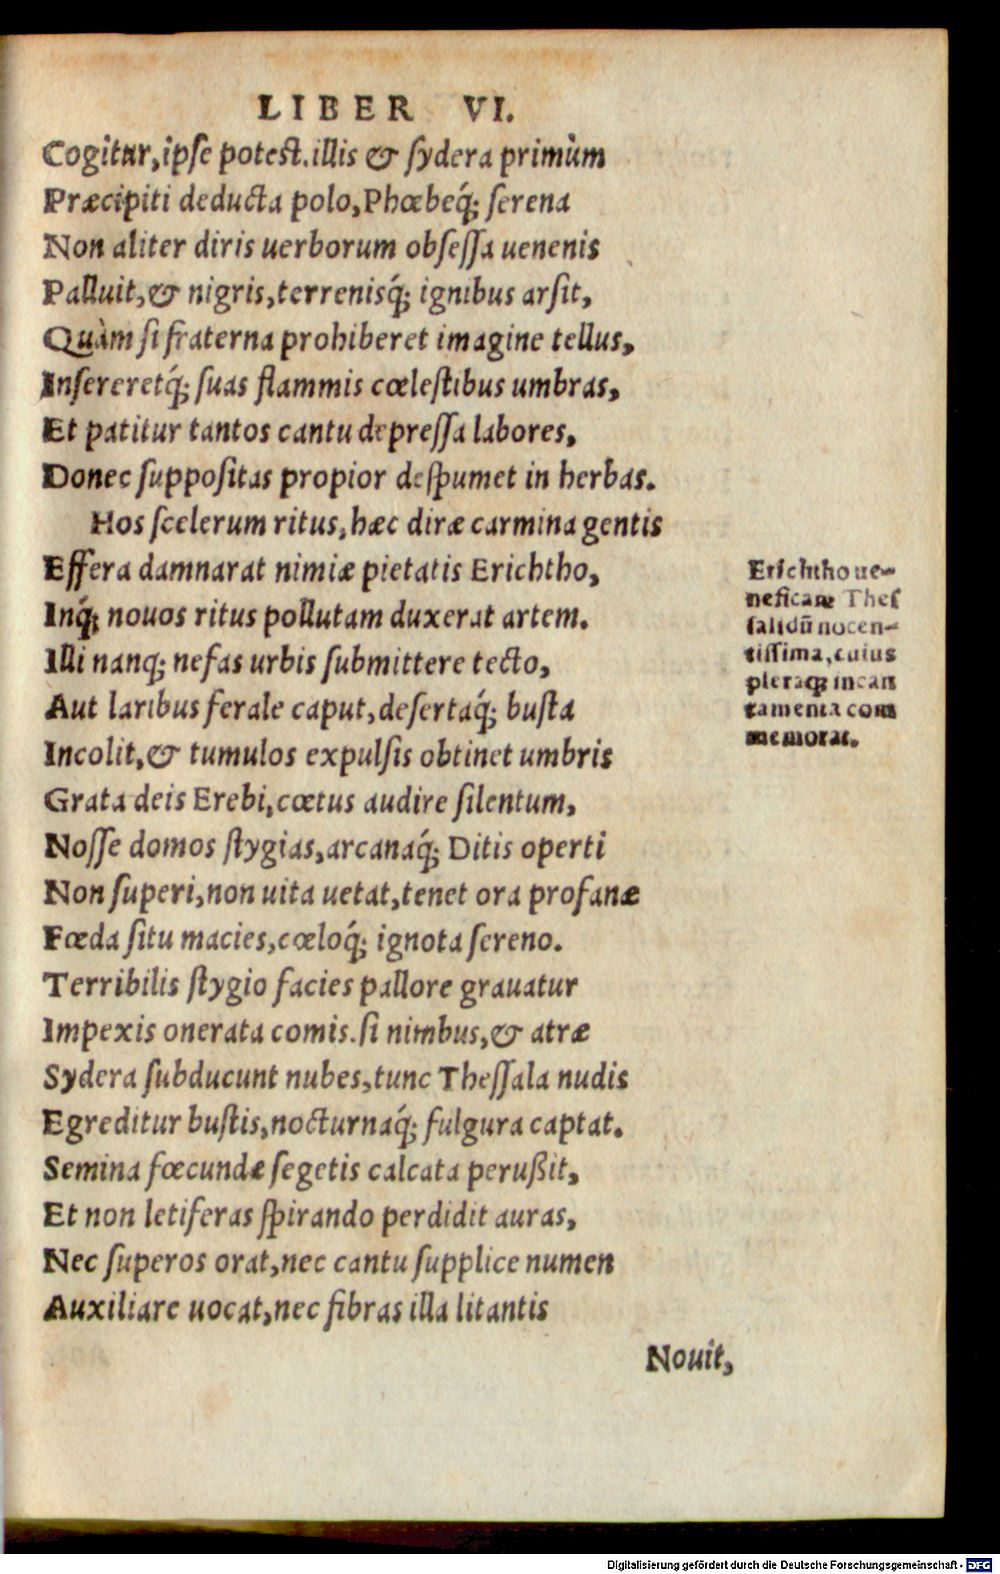 LIBER VI.
Cogitur, ipse potest. illis & sydera primùm
Præcipiti deducta polo, Phœbeq́; serena
Non aliter diris uerborum obsessa uenenis
Palluit, & nigris, terrenisq́; ignibus arsit,
Quàm si fraterna prohiberet imagine tellus,
Insereretq́; suas flammis cœlestibus umbras,
Et patitur tantos cantu depressa labores,
Donec suppositas propior despumet in herbas.
Hos scelerum ritus, hæc diræ carmina gentis
Effera damnarat nimiæ pietatis Erichtho,
Inq́; nouos ritus pollutam duxerat artem.
Illi nanq; nefas urbis submittere tecto,
Aut laribus ferale caput, desertaq́; busta
Incolit, & tumulos expulsis obtinet umbris
Grata deis Erebi, cœtus audire silentum,
Nosse domos stygias, arcanaq́; Ditis operti
Non superi, non uita uetat, tenet ora profanæ
Fœda situ macies, cœloq́; ignota sereno.
Terribilis stygio facies pallore grauatur
Impexis onerata comis. si nimbus, & atræ
Sydera subducunt nubes, tunc Thessala nudis
Egreditur bustis, nocturnaq́; fulgura captat.
Semina fœcundæ segetis calcata perußit,
Et non letiferas spirando perdidit auras,
Nec superos orat, nec cantu supplice numen
Auxiliare uocat, nec fibras illa litantis
Nouit,
Erichtho ue-
neficarũ Thes
salidũ nocen-
tissima, cuius
pleraq; incan
tamenta com
memorat.
Digitalisierung gefördert durch die Deutsche Forschungsgemeinschaft - DFG